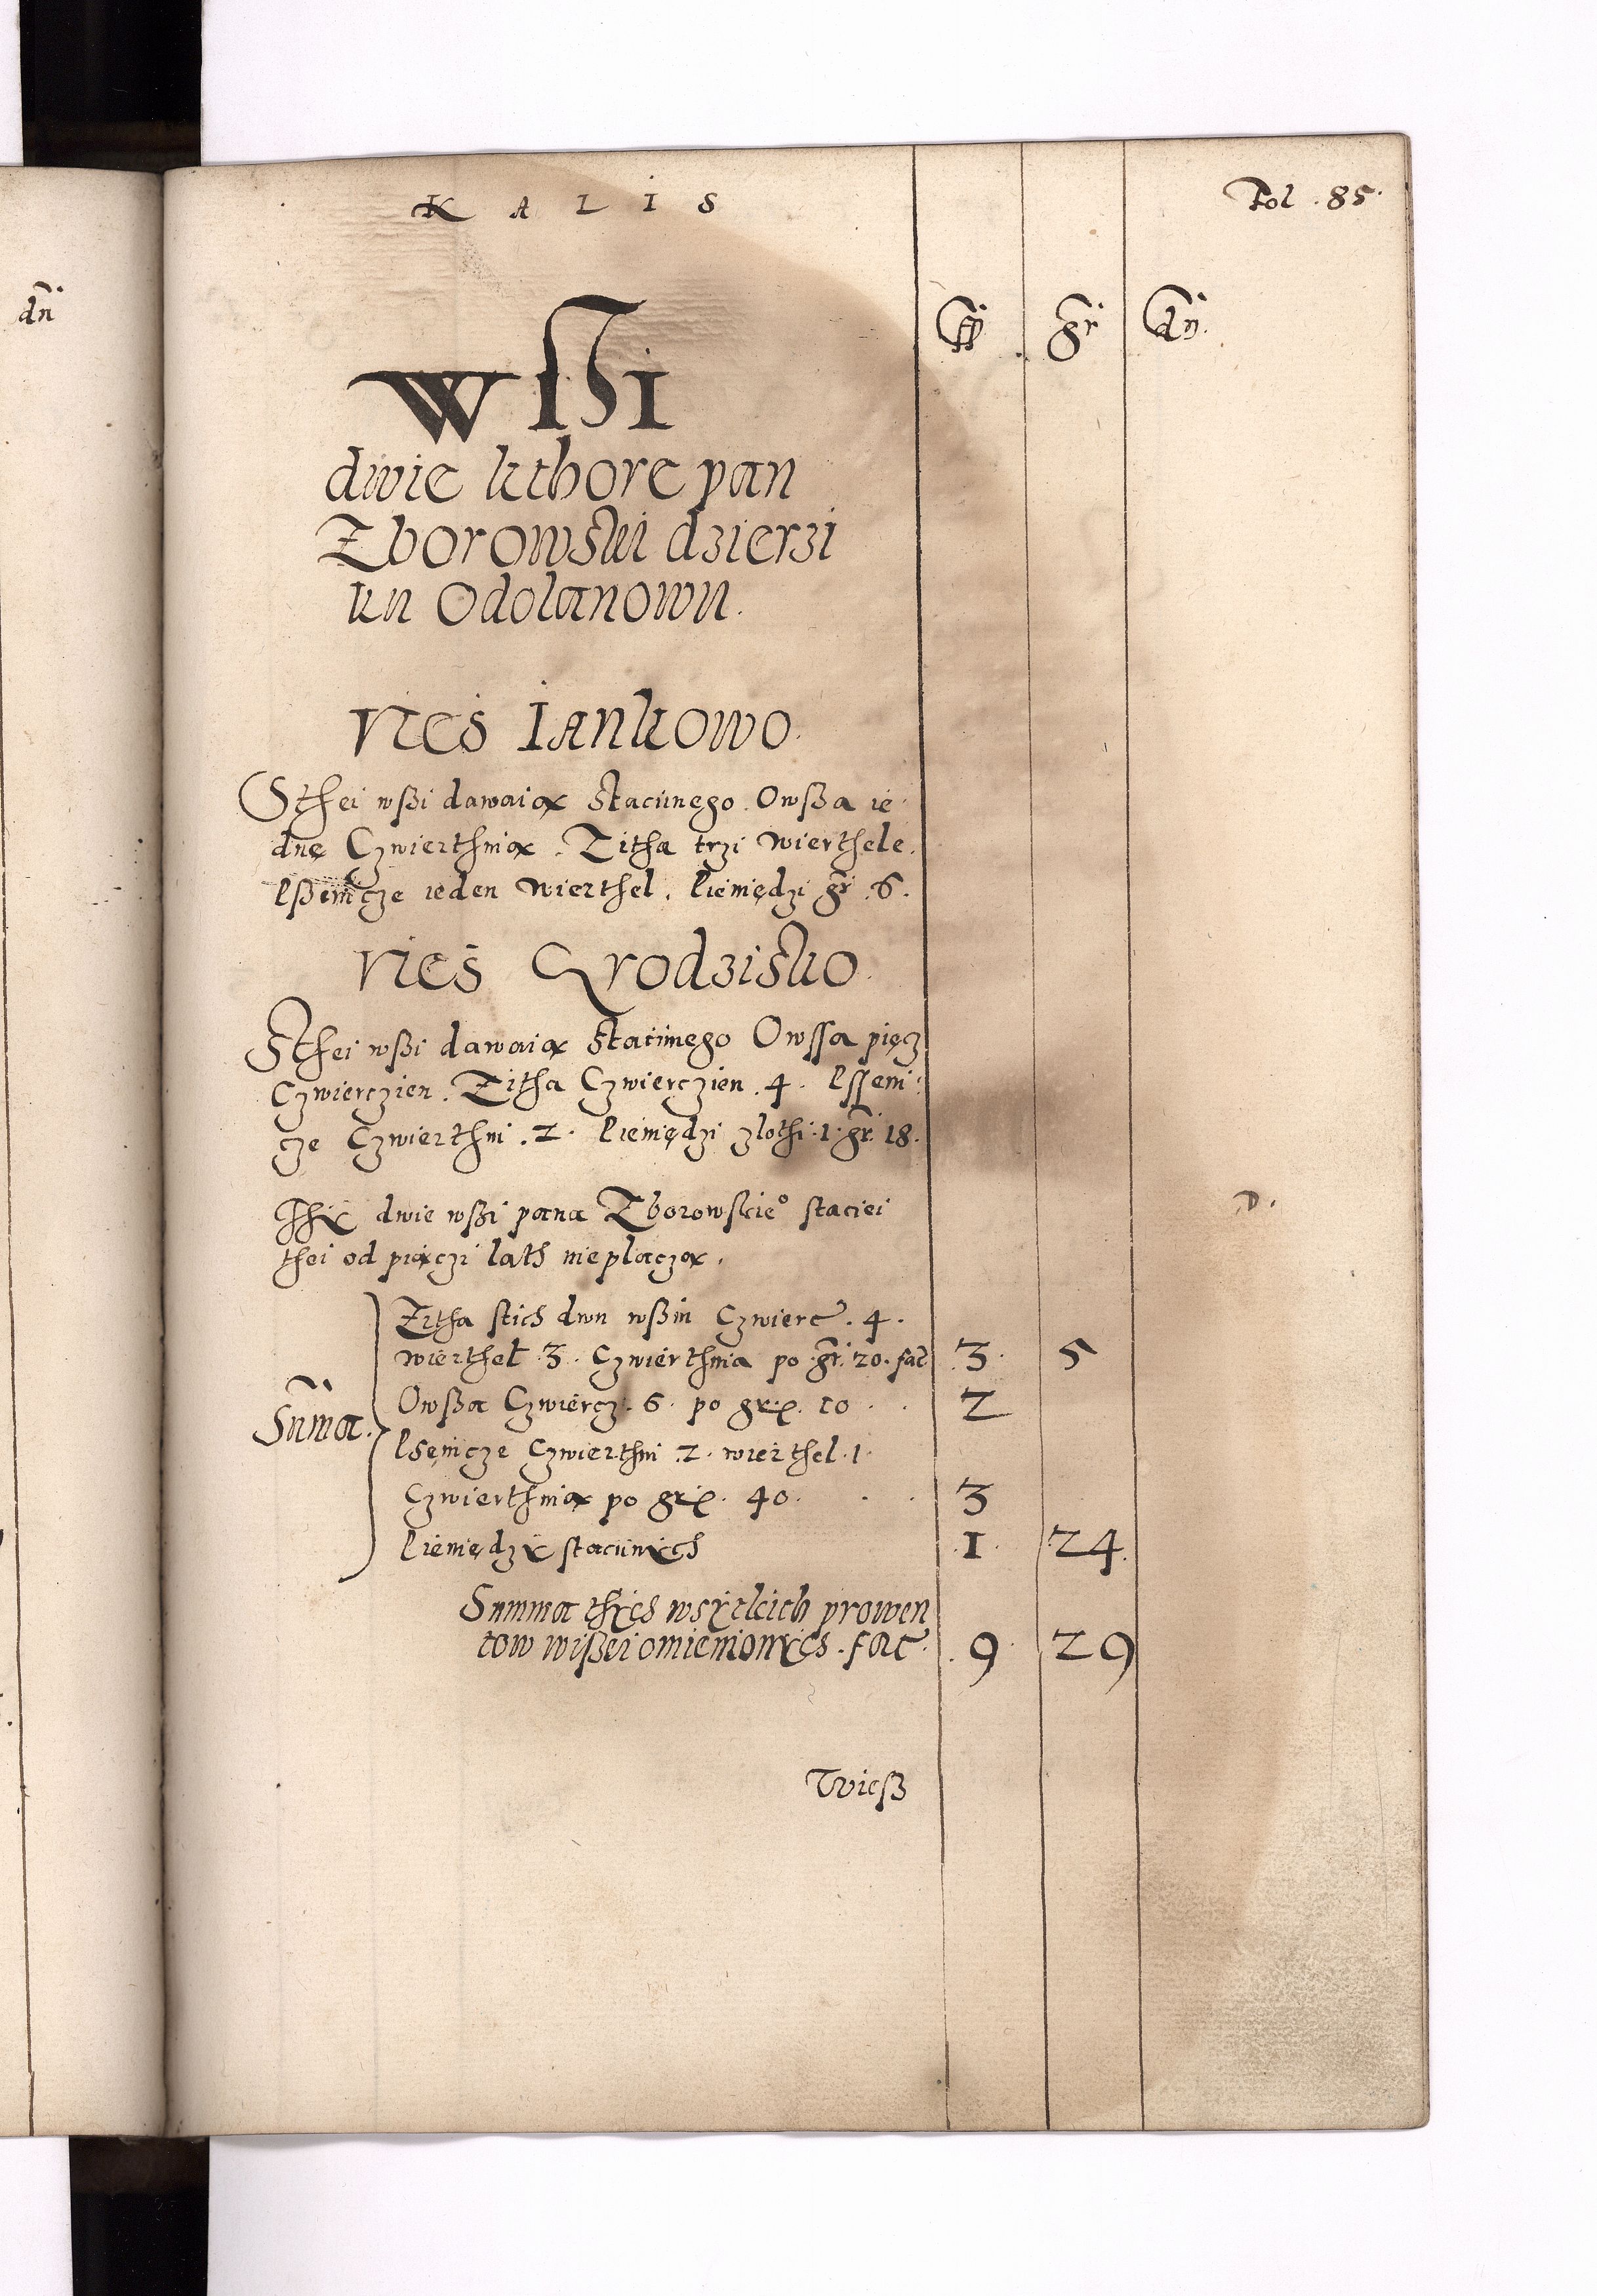 dñ
KALIS
Fol. 85.
fl gr dn.
WſSi
dwie kthore pan
Zborowski dzierzi
ku Odolanowu.
Vies Iankowo.
Sthei wßi dawaią Staciinego. Owßa ie
dnę Czwierthnią. Zitha trzi wierthele.
Pßenicze ieden wierthel. Pieniędzi gr. 6.
Vies Grodzisko.
Sthei wßi dawaią Staciinego Owſſa pięcz
Czwierczien. Zitha Czwierczien. 4. Pſſeni
cze Czwierthni. 2. Pieniędzi zlothi. 1. gr. 18.
Thÿ dwie wßi pana Zborowskie° staciei
thei od piączi lath nieplaczą.
D.
Sum̃a.
Zitha stich dwu wßiu Czwierc. 4.
wierthel. 3. Czwierthnia po gr. 20. fac 3. 5
Owßa Czwiercz. 6. po gr. 10 . . 2
Psenicze Czwierthni. 2. wierthel. 1.
Czwierthnią po gr. 40. . . 3
Pieniędzÿ staciinÿch .1. 24.
Summa thÿch wsÿtkich prowen
tow wißei omienionÿch. fac. . 9. 29
Wieß